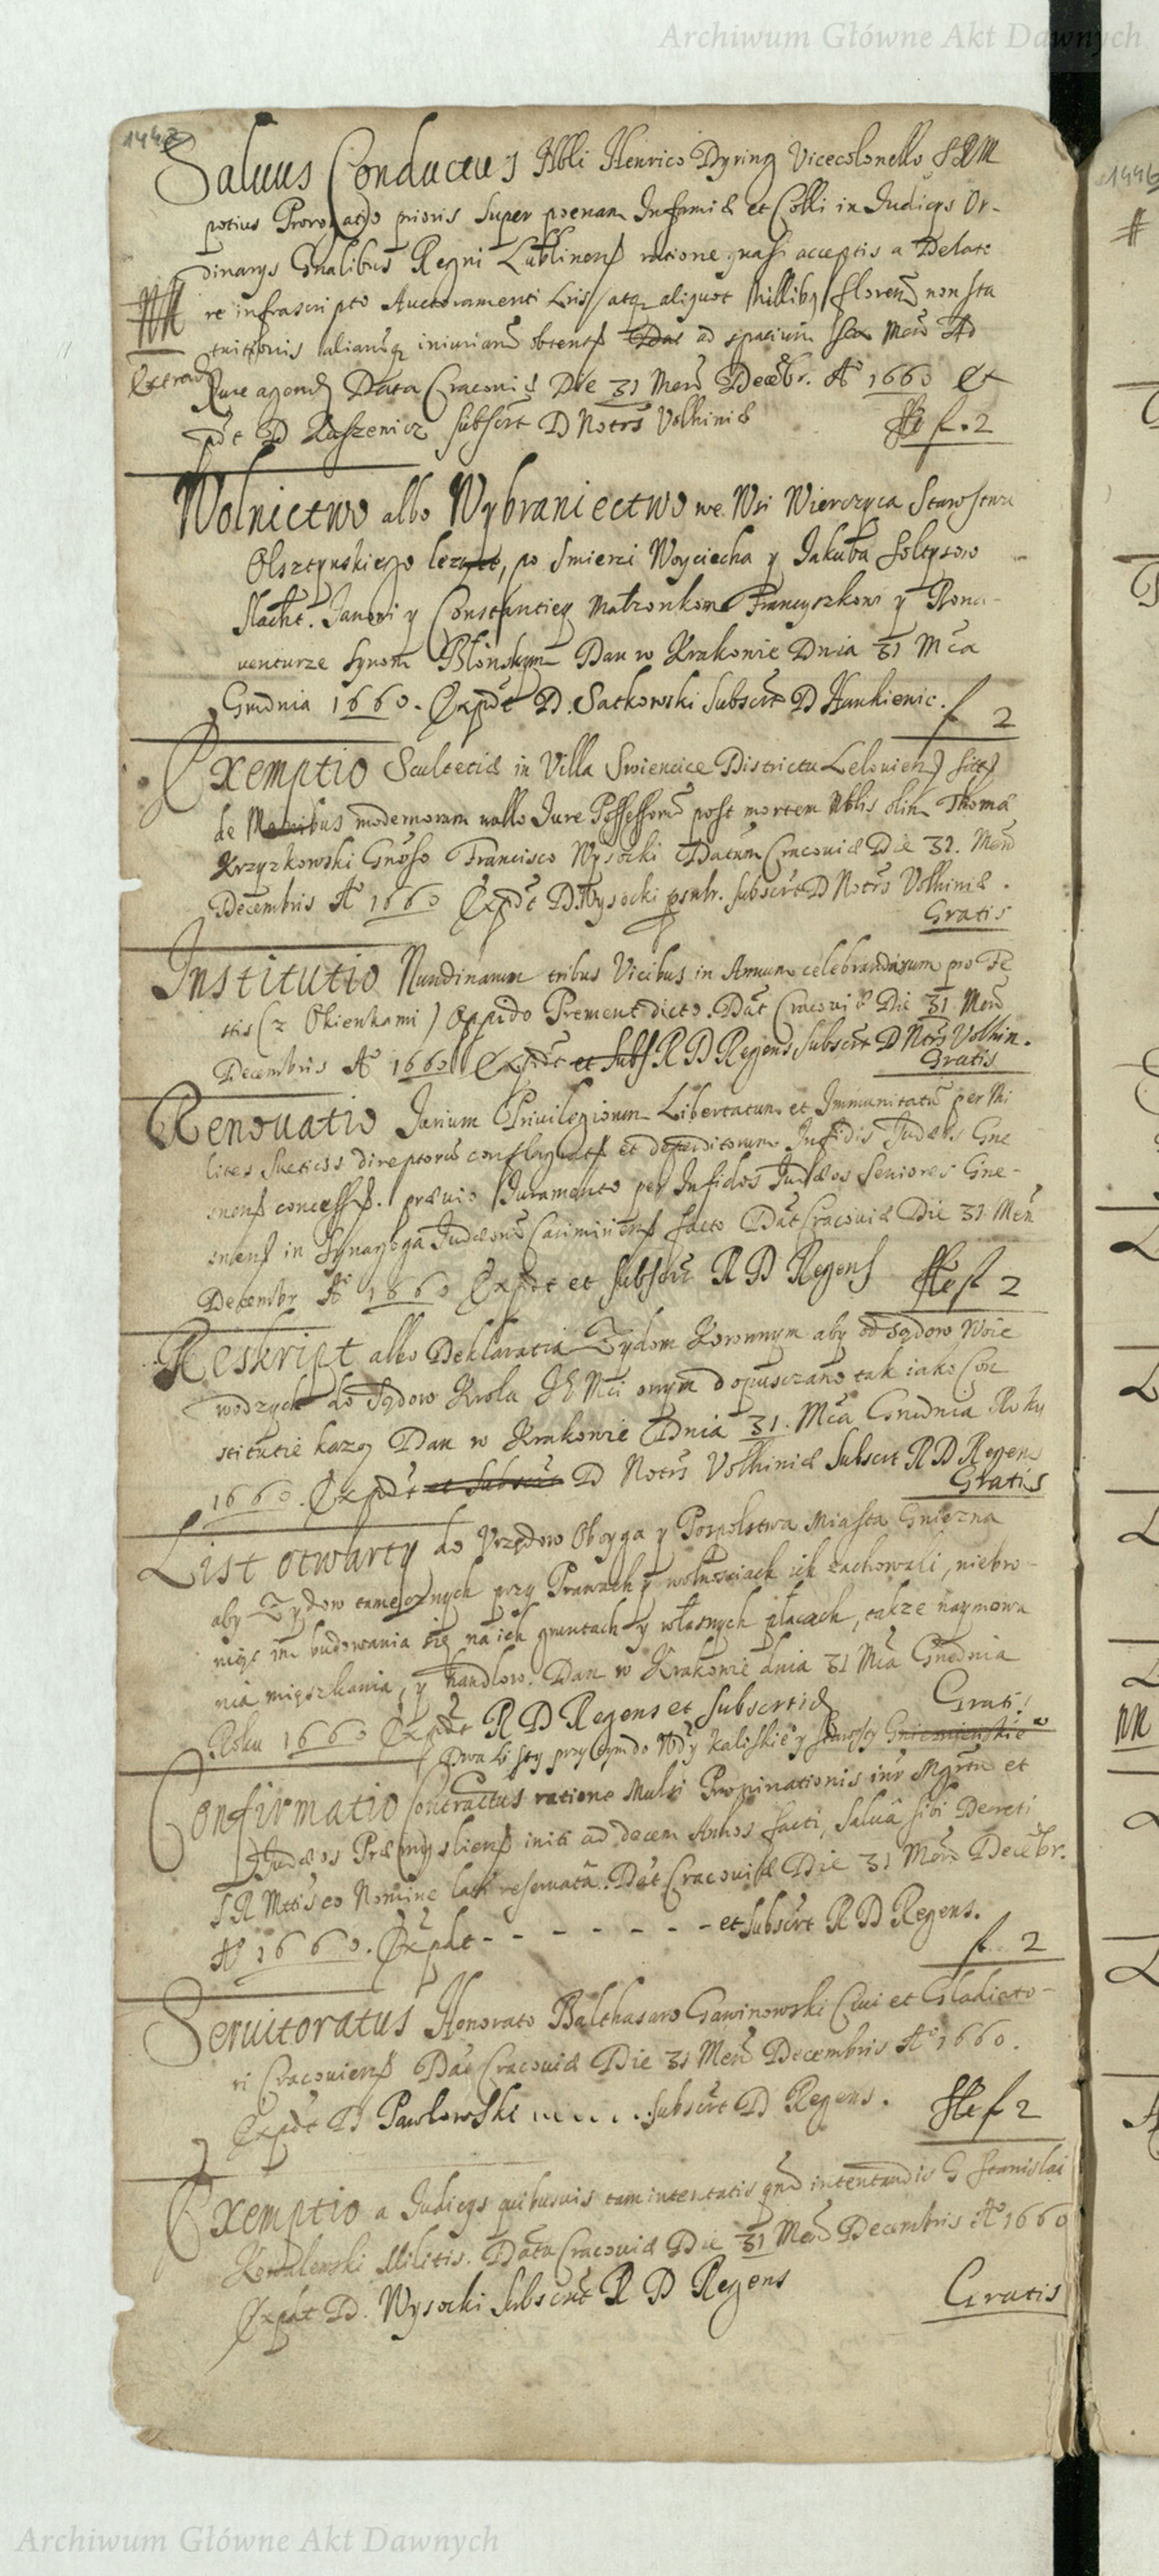 Archiwum Główne Akt Dawnych
Saluus Conductus Nbli Henrico Dyring Vicecolonello SRM
potius Prorogatio prioris super poenam Infamiæ et Colli in Judicys Or-
dinarys Gnalibus Regni Lublinens ratione quasi acceptis a Delato
re infrascripto Auctoramenti Lris atq aliquot Millibq floren non sta
tuitionis aliarusq iniuriaru obtens ad spacium sex Men Ad
Extrad
Jure agend Data Cracoviæ Die 31 Men Decebr. Aº 1660 Ex
pdt D Kaszenicz subscrt D Notrs Volhiniæ
f. 2
Wolnictwo albo Wybraniectwo we Wsi Wierczyca Starostwa
Olsztynskiego , po smierci Woyciecha y Jakuba Soltysow
Slacht. Janowi y Constantiey Małzonkom Franciszkowi y Bona-
venturze synom Błonskym Dan w Krakowie Dnia 31 Mca
Grudnia 1660. Expdt D. Satkowski Subscrt D Hankienic.
f 2
Exemptio Scultetiæ in Villa Swiencice Districtu Lelovien sit
de Manibus modernorum nullo Jure Possessoru post mortem Nblis olim Thomæ
Krzyzkowski Gnoso Francisco Wysocki Datum Cracoviæ Die 31. Men
Decembris Aº 1660 Expdt D. Wysocki psnlr. subscrt D Notrs Volhiniæ.
Gratis
Institutio Nundinarum tribus Vicibus in Annum celebrandarum pro Fe
stis (z Okienkami) Oppido Prement dicto. Dat Cracoviæ Die 31 Men
Decembris Aº 1660 Expdt et Subs R D Regens, subscrt D Ntrs Volhin.
Gratis
Renouatio Jurium Privilegiorum Libertatum et Immunitatu per Mi
lites Sueticos direptoru conflagrat et deperditorum Infidis Judæis Gne
snens concess. prævio Juramento per Infidos Judæos Seniores Gne-
snens in Synagoga Judæoru Casimiriens facto Dat Cracoviæ Die 31 Men
Decembr Aº 1660 Expdt et subscrt R D Regens
f 2
Reskript albo Deklaratia Zydom Koronnym aby od sądow Woie
wodzych do Sądow Krola JE Mci onym dopusczano tak iako Con
stitutie każą Dan w Krakowie Dnia 31. Mca Grudnia Roku
1660. Expdt et Subscrt D Notrs Volhiniæ Subscrt R D Regens
Gratis
List otwarty do Vrzędow Oboyga y Pospolstwa Miasta Gniezna
aby Zydow tameeznych przy Prawach y wolnosciach ich zachowali, niebro-
niąc im budowania się na ich gruntach y własnych placach, takze naymowa
nia mięszkania, y handlow. Dan w Krakowie dnia 31 Mca Grudnia
Roku 1660 Expdt R D Regens et subscrtid
Gratis
Dwa Listy przytym do Wdy Kaliskie y Starosty Gnieznienskie
Confirmatio Contractus ratione Mulsi Propinationis intr Mgrtu et
Judæos Præmysliens initi ad decem Annos facti, salva sibi Decreti
SR Mttis eo Nomine lati reservata. Dat Cracoviæ Die 31 Men Decebr.
Aº 1660. Expdt - - - - - - - et Subscrt R D Regens.
f. 2
Seruitoratus Honorato Balthasaro Gawinowski Ciui et Gladiato-
ri Cracoviens Dat Cracoviæ Die 31 Men Decembris Aº 1660.
Expdt D Pawlowski ...... subscrt D Regens.
f 2
Exemptio a Judicys quibusvis tam intentatis qm intentandis G Stanislai
Kowalewski Militis. Data Cracoviæ Die 31 Men Decembris Aº 1660
Expdt D. Wysocki Subscrt R D Regens
Gratis
Archiwum Główne Akt Dawnych